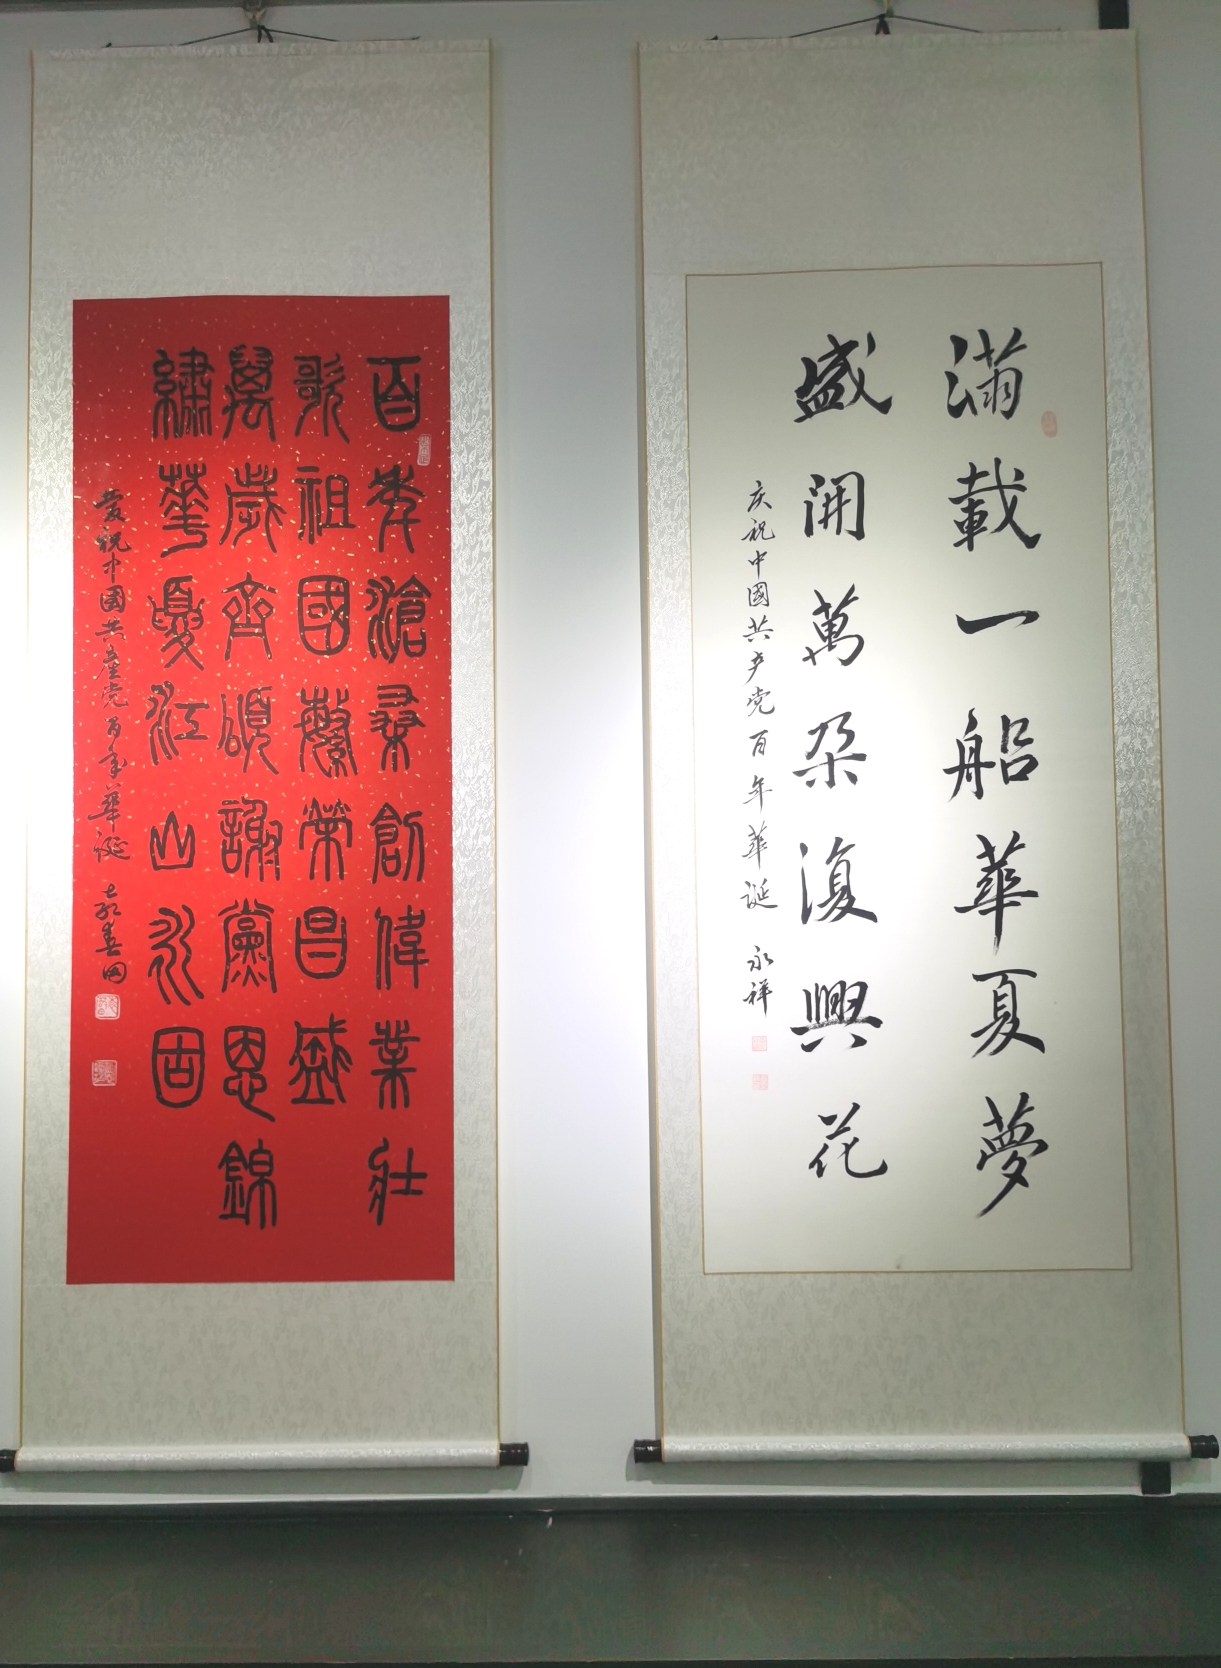 滿載一船華夏夢
盛開萬朶復興花
庆祝中國共产党百年華诞
永祥
百年滄桑創偉業壯
歌祖國繁榮昌盛
萬歲齊頌謝黨恩錦
繡華夏江山永固
慶祝中國共產党百年華诞
春國